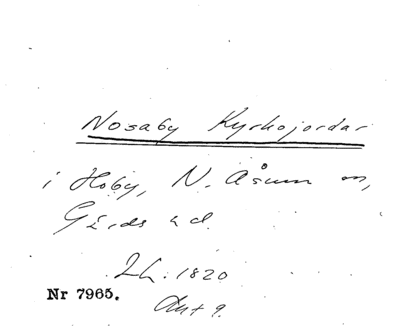 Nosaby Kyrkojordar
i Hoby, N. Åsum m,
Gärds hd.
Lh. 1820
Nr 7965.
Akt 9.